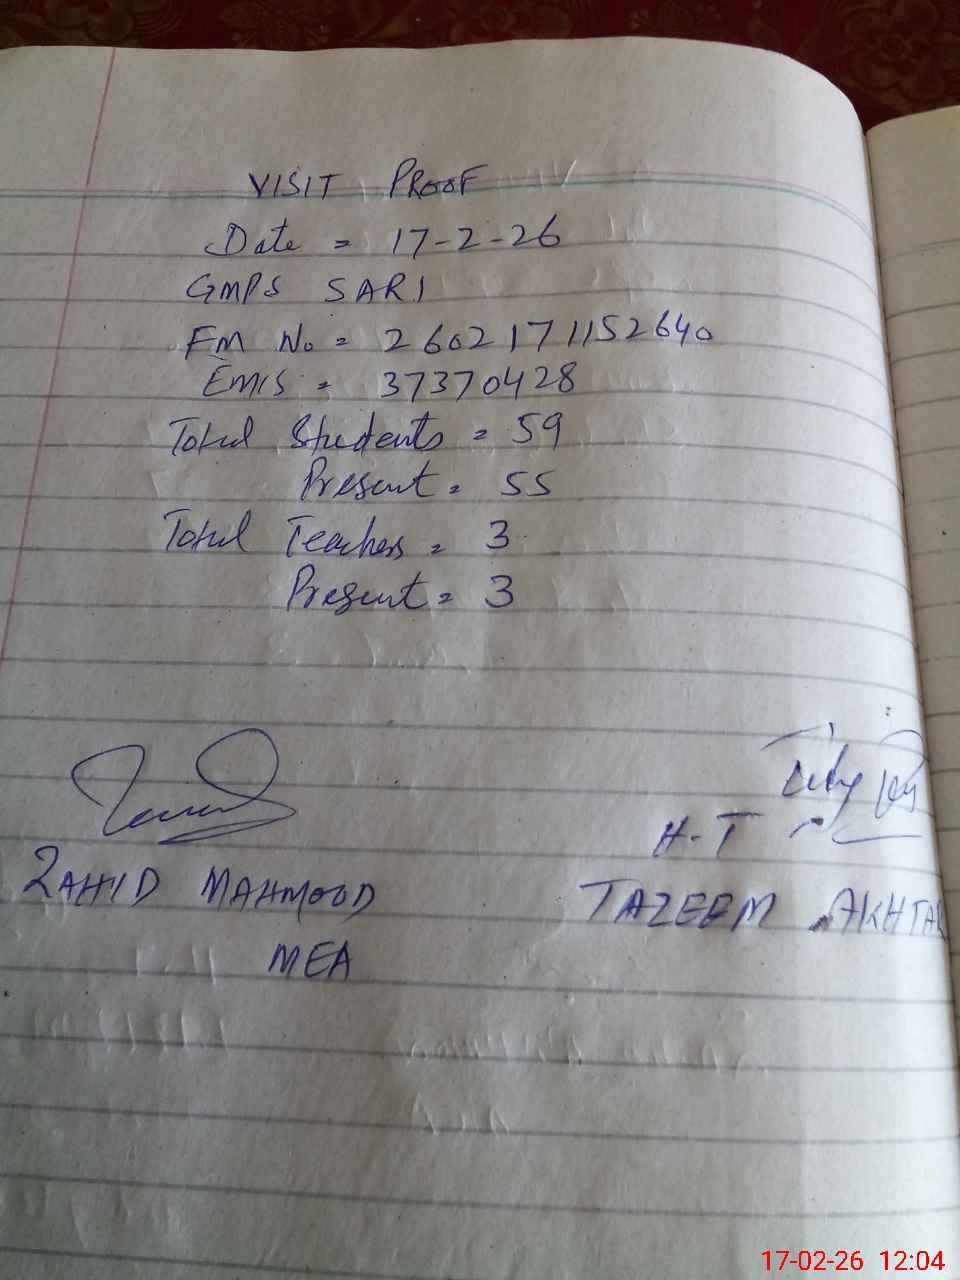 VISIT PROOF
Date = 17-2-26
GMPS SARI
FM No = 2602171152640
EMIS = 37370428
Total Students = 59
Present = 55
Total Teachers = 3
Present = 3
H-T
ZAHID MAHMOOD
TAZEEM AKHTAR
MEA
17-02-26 12:04